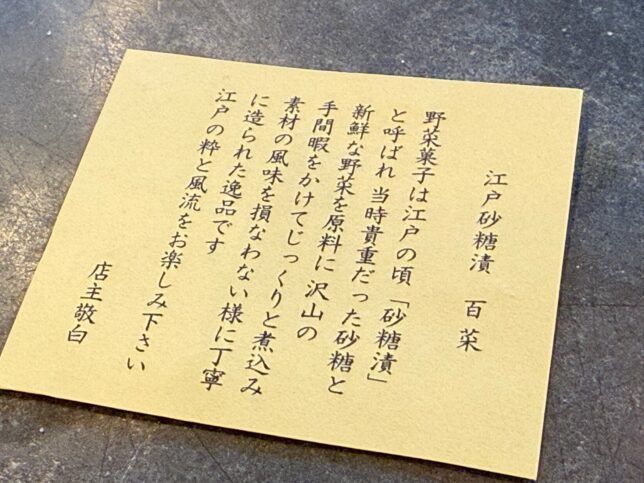 江戸砂糖漬　百菜
野菜菓子は江戸の頃「砂糖漬」
と呼ばれ 当時貴重だった砂糖と
新鮮な野菜を原料に 沢山の
手間暇をかけてじっくりと煮込み
素材の風味を損なわない様に丁寧
に造られた逸品です
江戸の粋と風流をお楽しみ下さい
店主敬白